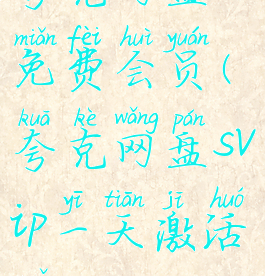 miǎn fèi huì yuán
免费会员(
kuā kè wǎng pán
夸克网盘SV
yī tiān jī huó
ip一天激活